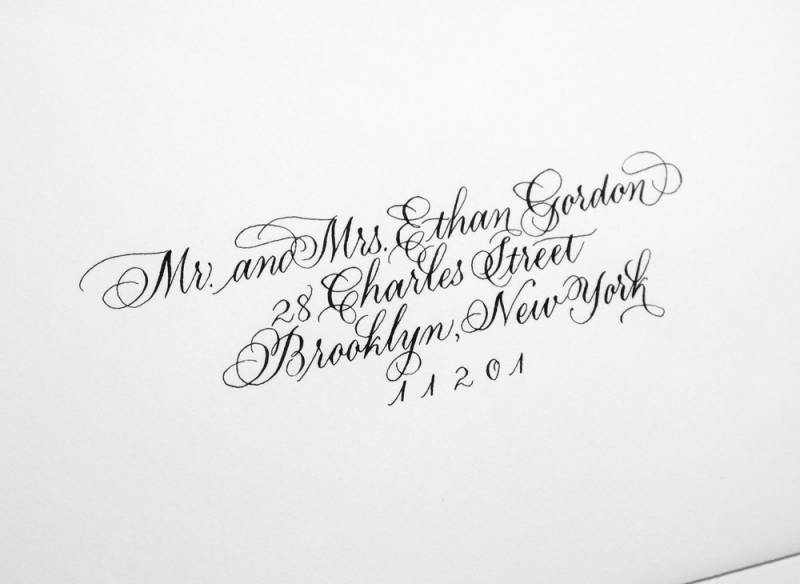 Mr. and Mrs. Ethan Gordon
28 Charles Street
Brooklyn, New York
11201